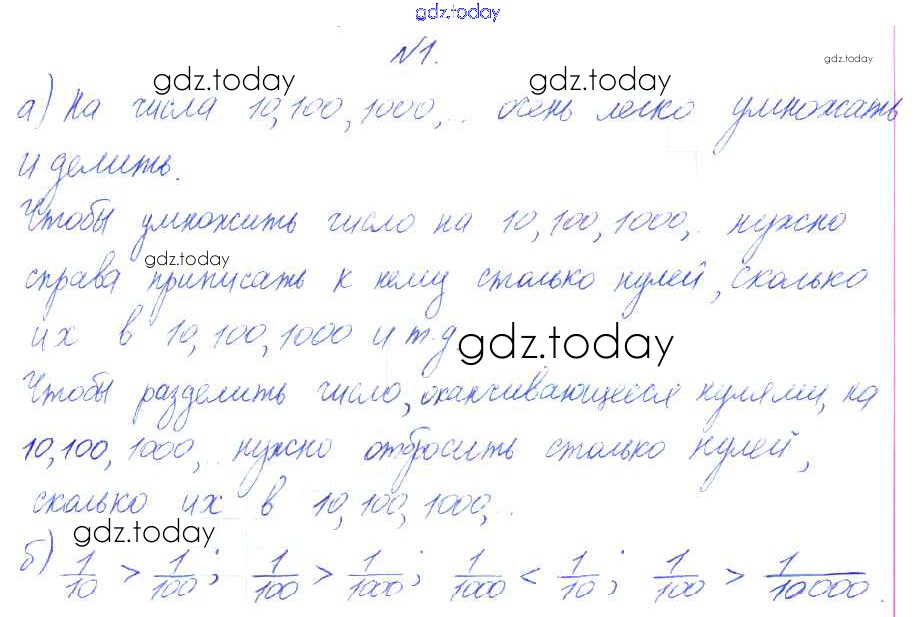 gdz.today
№1.
gdz.today
gdz.today gdz.today
а) На числа 10, 100, 1000,.. очень легко умножать
и делить.
Чтобы умножить число на 10, 100, 1000,.. нужно
gdz.today
справа приписать к нему столько нулей, сколько
их в 10, 100, 1000 и т.д
gdz.today
Чтобы разделить число, оканчивающееся нулями, на
10, 100, 1000,.. нужно отбросить столько нулей,
сколько их в 10, 100, 1000,..
gdz.today
б) 1/10 > 1/100; 1/100 > 1/1000; 1/1000 < 1/10; 1/100 > 1/10000.